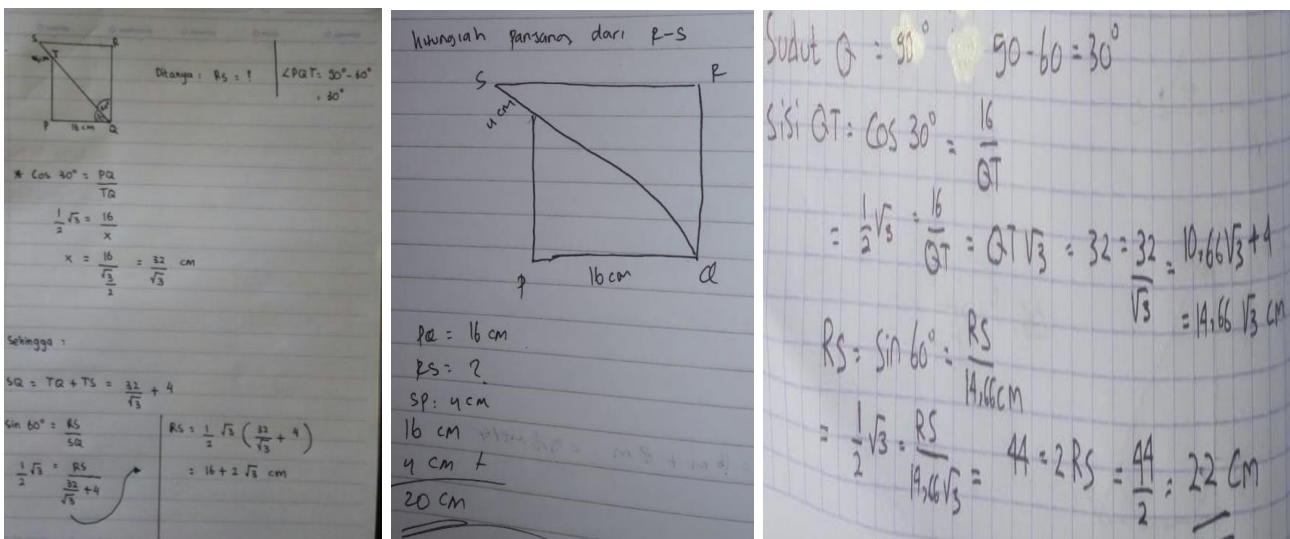 S
R
T
4 cm
60°
P
16 cm
Q
Ditanya : RS = ?
∠PQT = 90° - 60°
= 30°
* Cos 30° = PQ/TQ
1/2 √3 = 16/x
x = 16/(√3/2) = 32/√3 cm
Sehingga :
SQ = TQ + TS = 32/√3 + 4
sin 60° = RS/SQ
1/2 √3 = RS/(32/√3 + 4)
RS = 1/2 √3 (32/√3 + 4)
= 16 + 2√3 cm
hitunglah panjang dari R-S
S
R
4 cm
P
16 cm
Q
PQ = 16 cm
RS = ?
SP : 4 cm
16 cm
4 cm +
20 cm
Sudut Q = 90° 90-60 = 30°
Sisi QT = Cos 30° = 16/QT
= 1/2 √3 = 16/QT = QT√3 = 32 = 32/√3 = 10,66√3 + 4
= 14,66 √3 cm
RS = Sin 60° = RS/14,66 cm
= 1/2 √3 = RS/14,66√3 = 44 = 2 RS = 44/2 = 22 cm